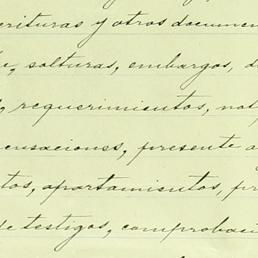 crituras y otros documen
solturas, embargos, d
requerimientos, not
ensaciones, presente a
tos, apartamientos, pr
de testigos, comprobaci